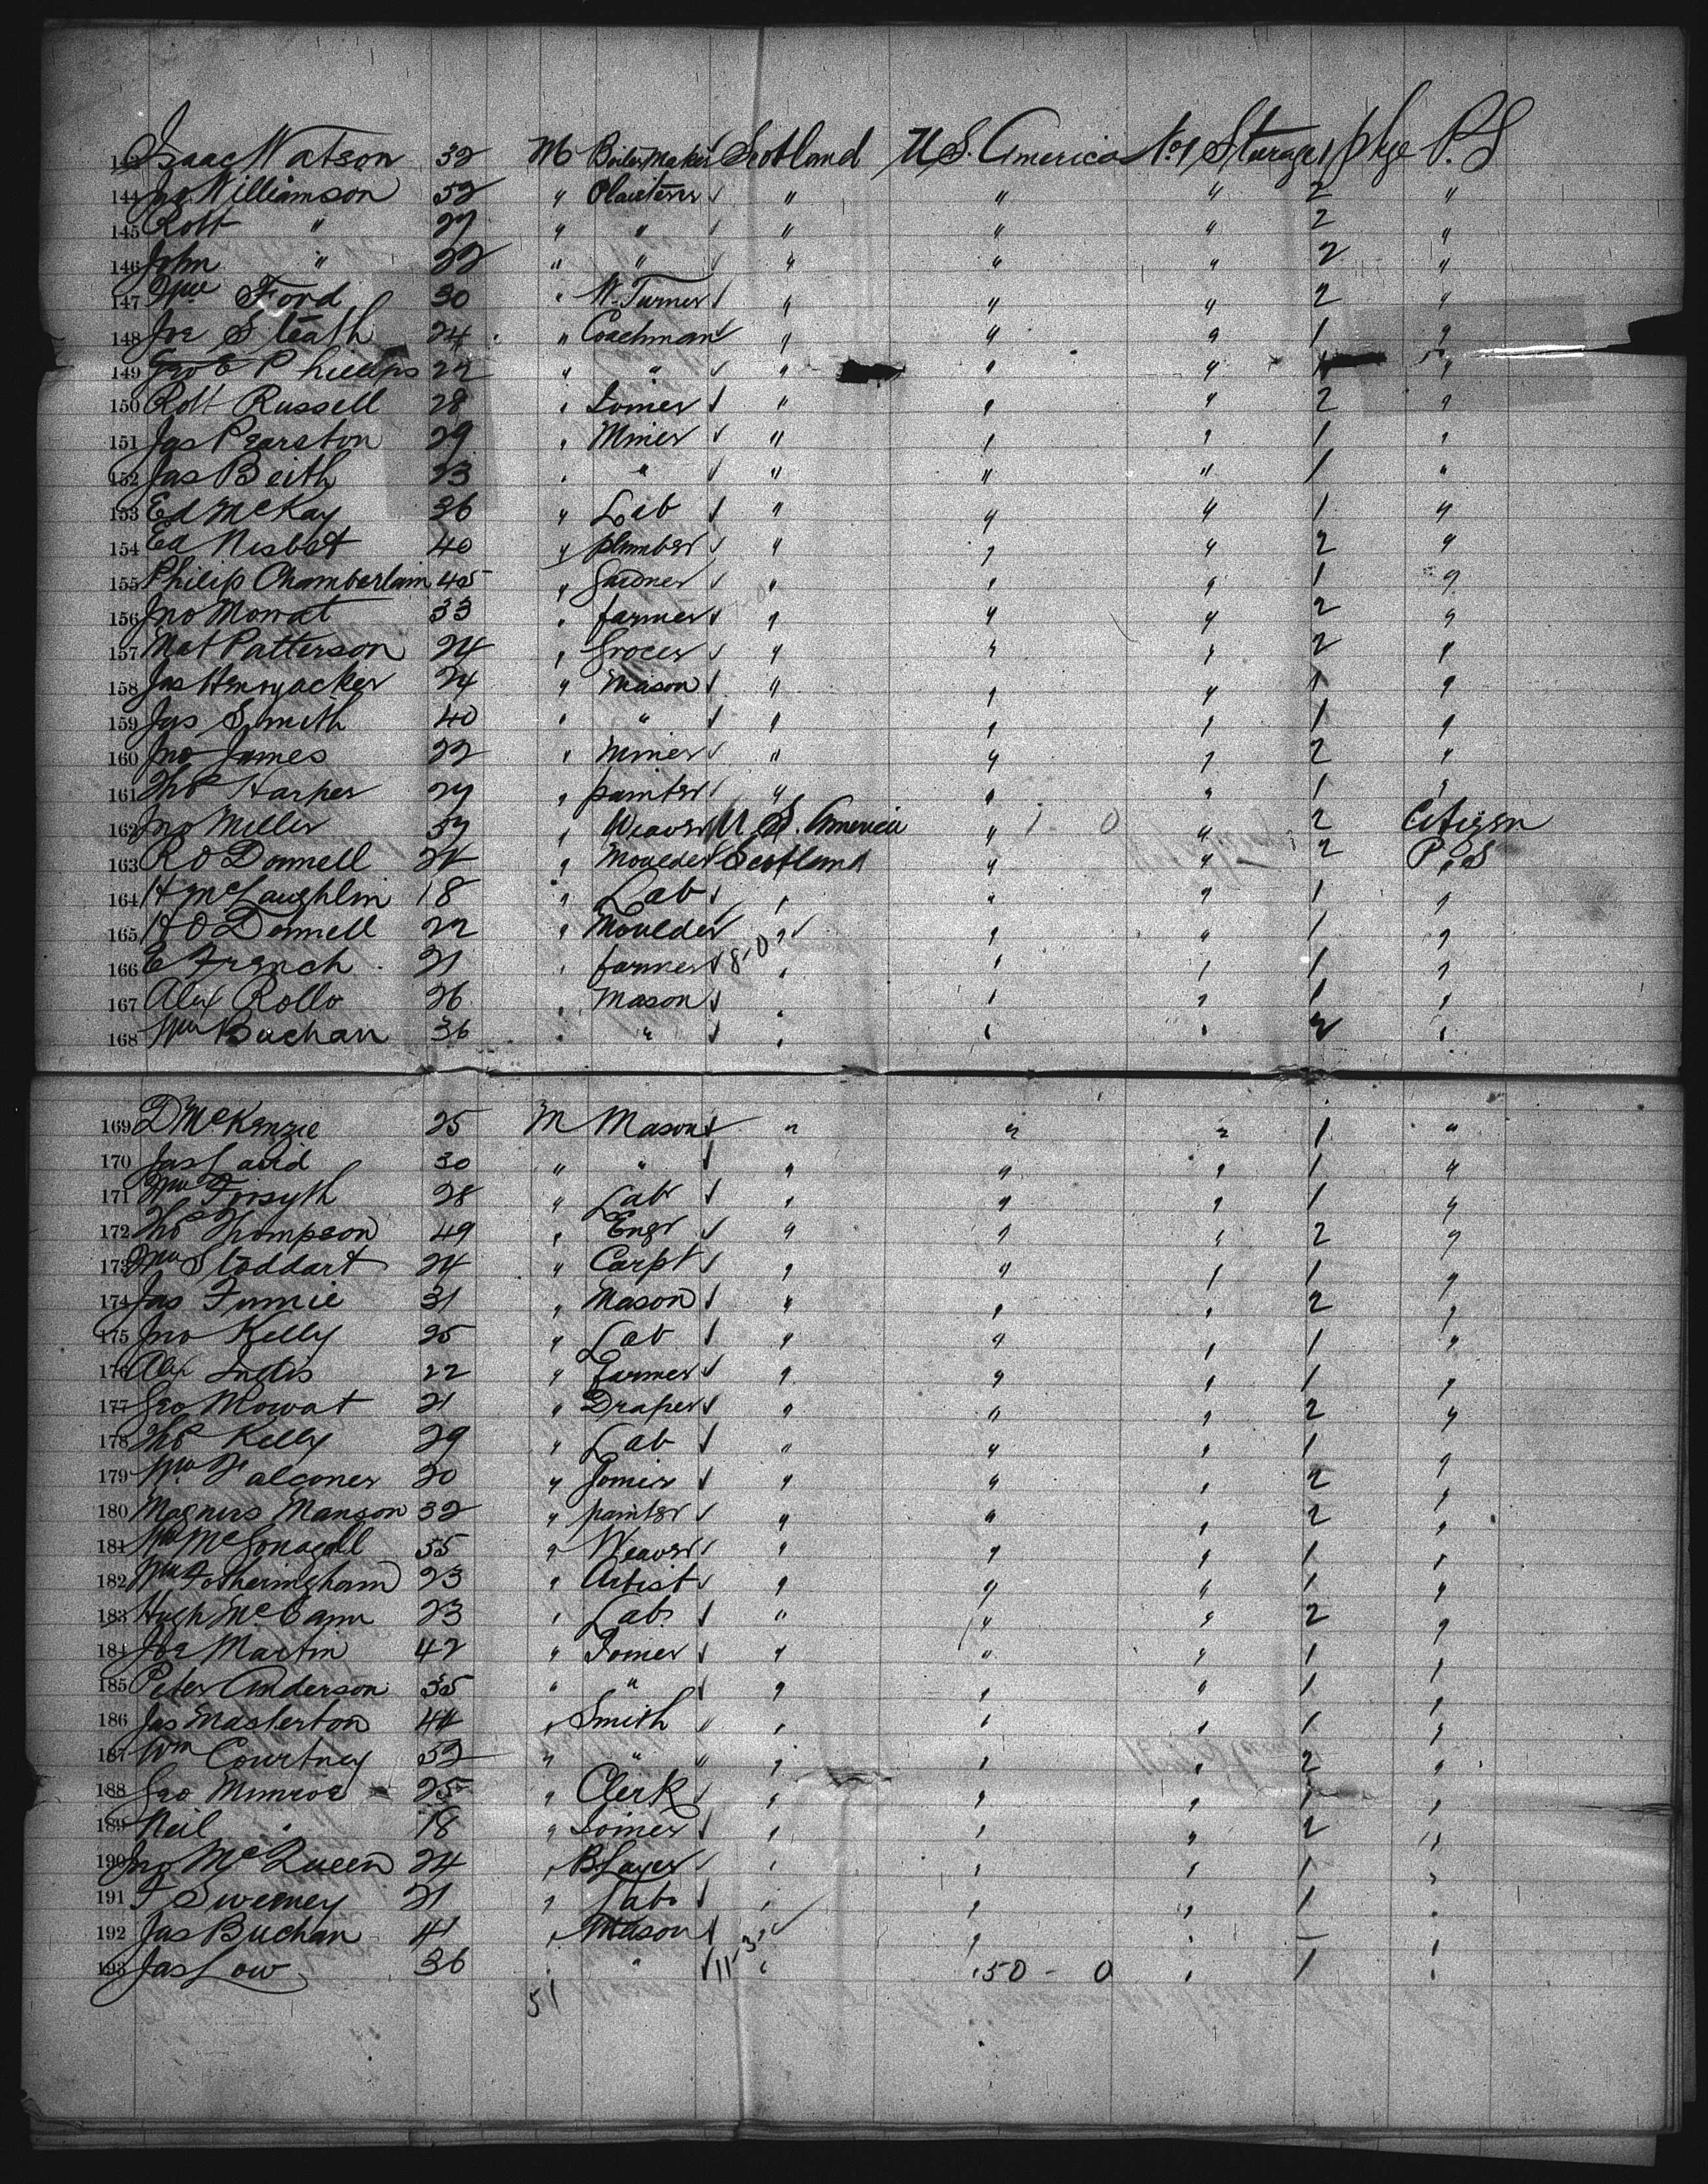 143 Isaac Watson 32 M Boiler Maker Scotland U.S. America No 1 Sterage 1 pkge P.S
144 Jno Williamson 52 " Plaisterer " " " 2 "
145 Robt " 27 " " " " " 2 "
146 John " 22 " " " " " 2 "
147 Wm Ford 30 " W. Turner " " " 2 "
148 Joe Sleath 24 " Coachman " " " 1 "
149 Geo E Phillips 22 " " " " " 1 "
150 Robt Russell 28 " Joiner " " " 2 "
151 Jas Pearston 29 " Miner " " " 1 "
152 Jas Beith 23 " " " " " 1 "
153 Ed McKay 36 " Lab " " " 1 "
154 Ed Nisbet 40 " plumber " " " 2 "
155 Philip Chamberlain 45 " Gardner " " " 1 "
156 Jno Mowat 33 " farmer " " " 2 "
157 Mat Patterson 24 " Grocer " " " 2 "
158 Jas 24 " Mason " " " 1 "
159 Jas Smith 40 " " " " " 1 "
160 Jno James 22 " Miner " " " 2 "
161 Thos Harper 27 " painter " " " 1 "
162 Jno Miller 37 " Weaver U.S. America " 1 - 0 " 2 Citizen
163 R O Donnell 24 " Moulder Scotland " " 2 P.S
164 H McLaughlin 18 " Lab " " " 1 "
165 H O Donnell 22 " Moulder " " " 1 "
166 E French 21 " farmer 8-0 " " " 1 "
167 Alex Rollo 26 " Mason " " 1 "
168 Wm Buchan 36 " " " " " 2 "
169 D McKenzie 25 M Mason " " " 1 "
170 Jas Laird 30 " " " " " 1 "
171 Wm Forsyth 28 " Labr " " " 1 "
172 Thos Thompson 49 " Engr " " " 2 "
173 Wm Stoddart 24 " Carpt " " " 1 "
174 Jas 31 " Mason " " " 2 "
175 Jno Kelly 25 " Lab " " " 1 "
176 Alex 22 " Farmer " " " 1 "
177 Geo Mowat 21 " Draper " " " 2 "
178 Thos Kelly 29 " Lab " " " 1 "
179 Wm Falconer 20 " Joiner " " " 2 "
180 Magnus Manson 32 " painter " " " 2 "
181 Wm McGonagall 55 " Weaver " " " 1 "
182 Wm Fotheringham 23 " Artist " " " 1 "
183 Hugh McCann 23 " Lab " " " 2 "
184 Joe Martin 42 " Joiner " " " 1 "
185 Peter Anderson 35 " " " " " 1 "
186 Jas Masterton 44 " Smith " " " " 1 "
187 Wm Courtney 52 " " " " " " 2 "
188 Geo Munroe 25 " Clerk " " " 1 "
189 Neil " 18 " Joiner " " " 2 "
190 Jno McQueen 24 " B Layer " " " 1 "
191 F Sweeney 21 " Lab " " " 1 "
192 Jas Buchan 41 " Mason " " " - "
193 Jas Low 36 " " 11-3 " " 50 - 0 " 1 "
51